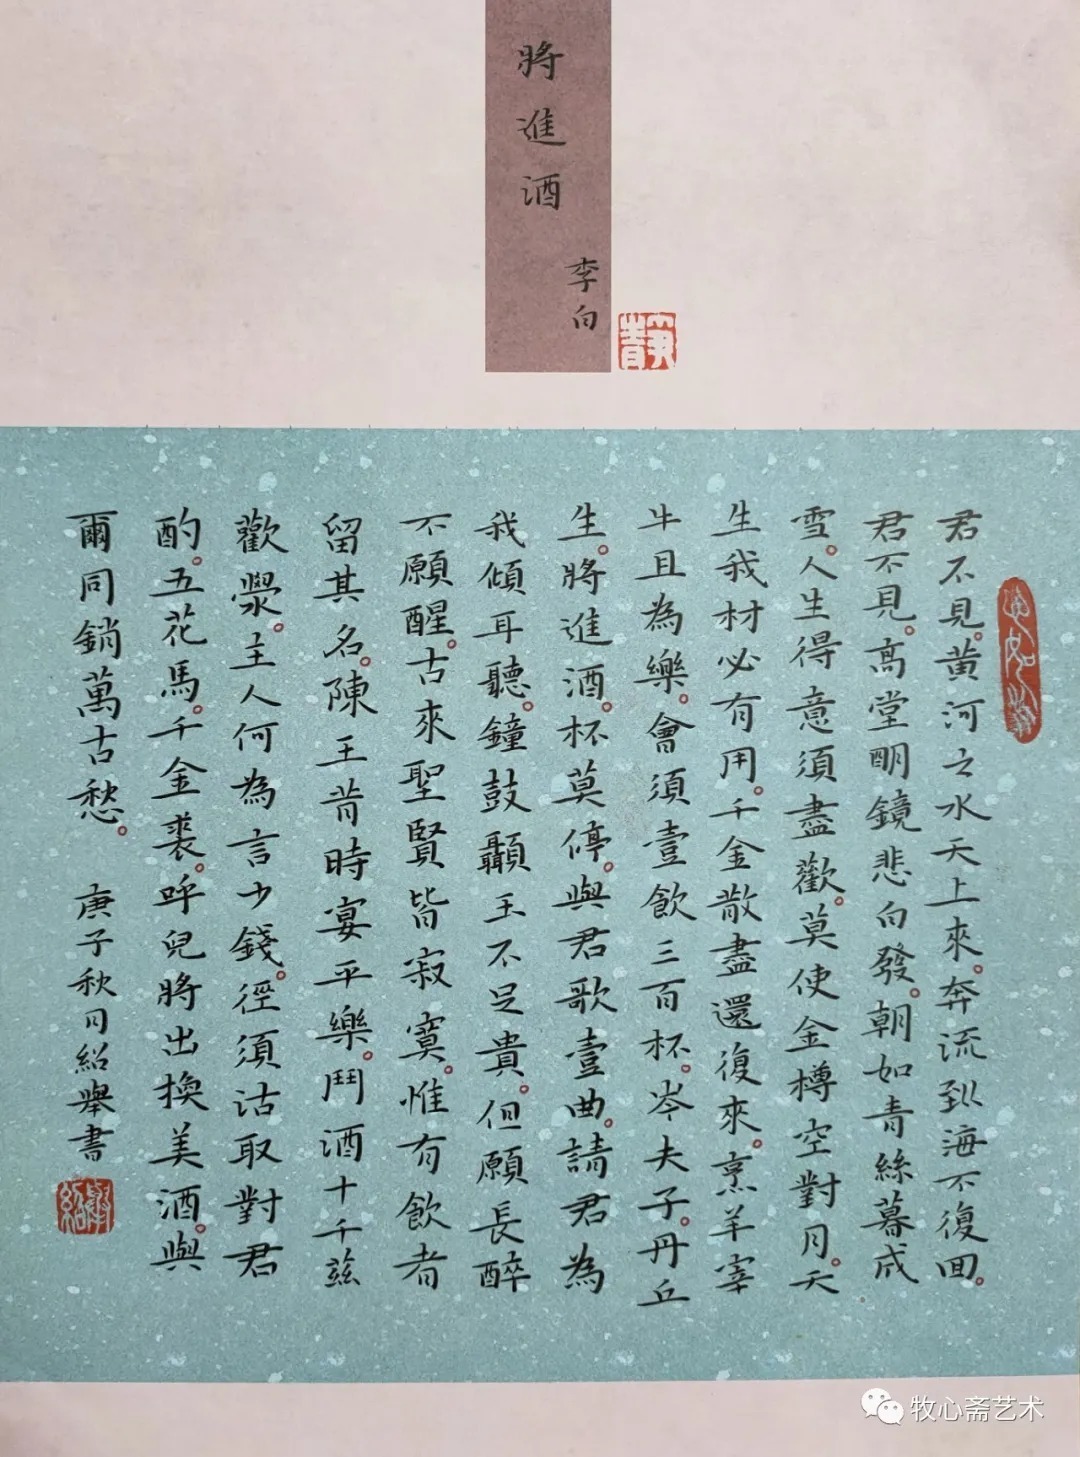 將進酒
李白
靜
君不見。黃河之水天上來。奔流到海不復回。
君不見。高堂明鏡悲白發。朝如青絲暮成
雪。人生得意須盡歡。莫使金樽空對月。天
生我材必有用。千金散盡還復來。烹羊宰
牛且為樂。會須壹飲三百杯。岑夫子。丹丘
生。將進酒。杯莫停。與君歌壹曲。請君為
我傾耳聽。鐘鼓玉不足貴。但願長醉
不願醒。古來聖賢皆寂寞。惟有飲者
留其名。陳王昔時宴平樂。鬥酒十千茲
歡。主人何為言少錢。徑須沽取對君
酌。五花馬。千金裘。呼兒將出換美酒。與
爾同銷萬古愁。 庚子秋司紹舉書
紹舉
牧心斋艺术